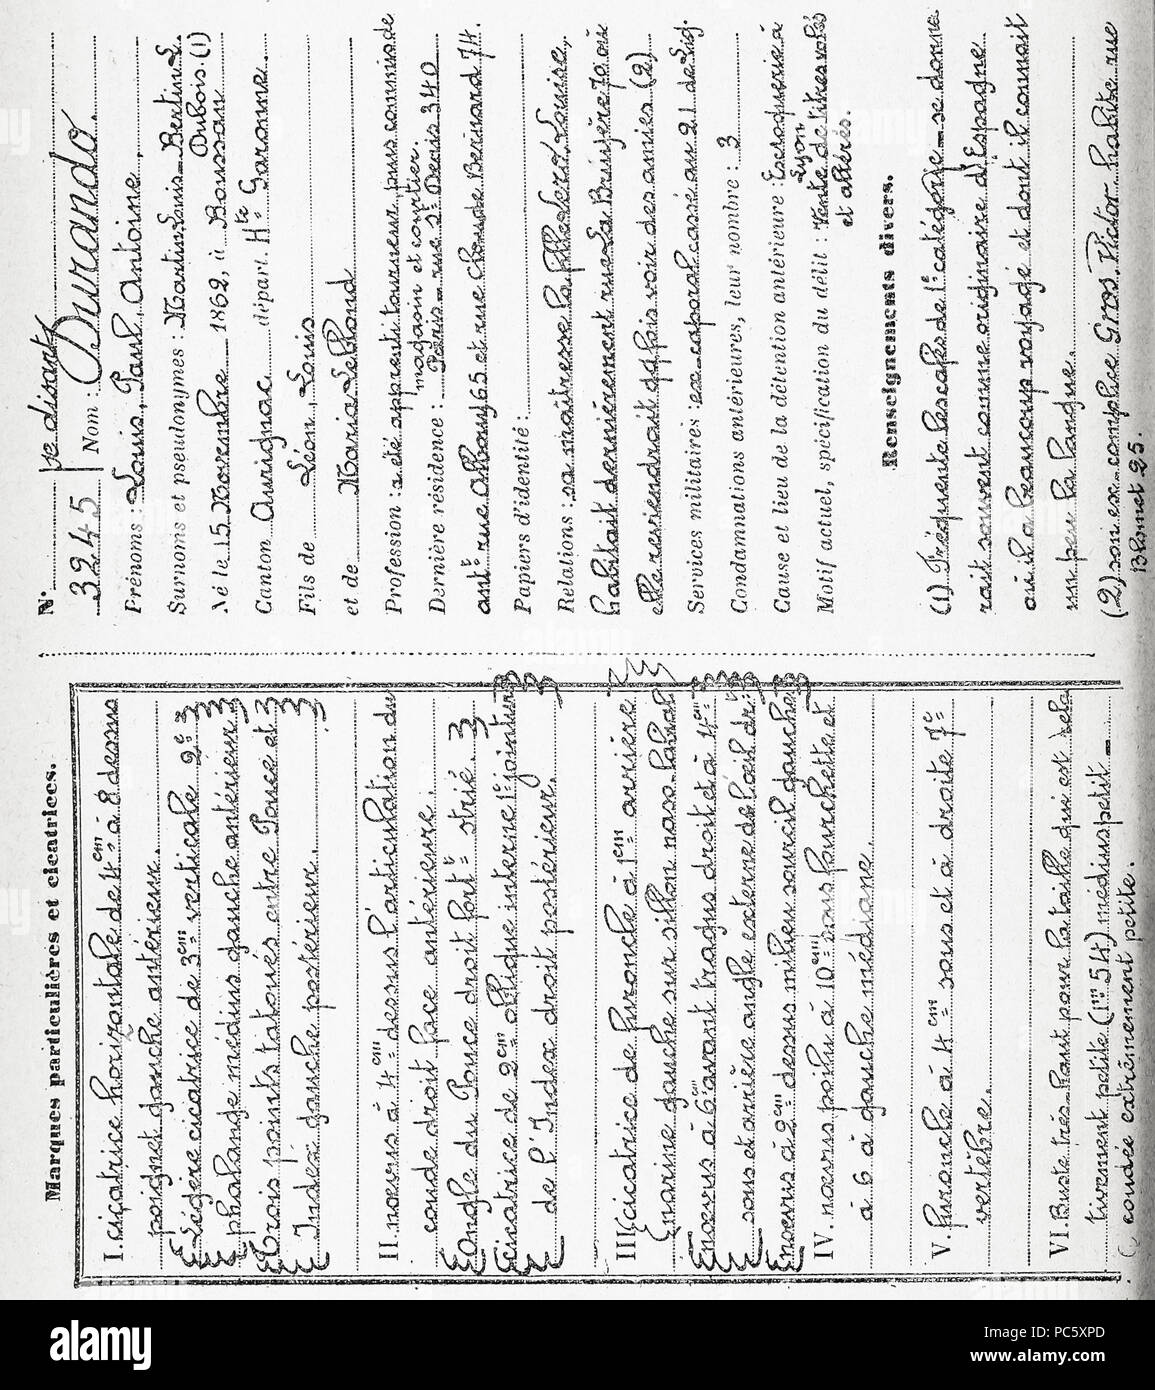 N°
se disant
3245 Nom : Durando.
Prénoms : Louis, Paul, Antoine.
Surnoms et pseudonymes : Martin Louis – Bertin L.
Dubois. (1)
Né le 15 Novembre 1862, à Boussan
Canton Aurignac départ. Hte Garonne.
Fils de Léon, Louis
et de Maria Leblond
Profession : a été apprenti tourneur, puis commis de
magasin et courtier.
Dernière résidence : Paris – rue St Denis 340
antt rue Albouy 65 et rue Claude Bernard 74.
Papiers d'identité :
Relations : sa maîtresse la fille Louise,
habitait dernièrement rue La Bruyère 70 où
elle reviendrait qqfois voir des amies (2)
Services militaires : ex-caporal cassé au 21 de Lig.
Condamnations antérieures, leur nombre : 3
Cause et lieu de la détention antérieure : Escroquerie à
Lyon
Motif actuel, spécification du délit : Vente de titres volés
et altérés.
Renseignements divers.
(1) Fréquente les cafés de 1e catégorie – se donne-
rait souvent comme originaire d'Espagne
où il a beaucoup voyagé et dont il connaît
un peu la langue.
(2) son ex-complice Gros Victor habite rue
Blomet 25.
Marques particulières et cicatrices.
I. cicatrice horizontale de 4cm à 8 dessus
poignet gauche antérieur.
Légère cicatrice de 3cm verticale 2e
phalange médius gauche antérieur
Trois points tatoués entre Pouce et
Index gauche postérieur.
II. nœvus à 4cm dessous l'articulation du
coude droit face antérieure.
Ongle du Pouce droit fortt strié.
Cicatrice de 2cm oblique interne 1e jointure
de l'Index droit postérieur.
III. Cicatrice de furoncle à 1cm arrière
narine gauche sur sillon naso-labial
Nœvus à 6cm avant tragus droit et à 4cm
sous et arrière angle externe de l'œil dr.
nœvus à 2cm dessus milieu sourcil gauche
IV. nœvus poilu à 10cm sous fourchette et
à 6 à gauche médiane.
V. furoncle à 4cm sous et à droite 7e
vertèbre.
VI. Buste très-haut pour la taille qui est rela
tivement petite (1m 54) médius petit –
coudée extrêmement petite.
alamy
Image ID: PC5XPD
www.alamy.com